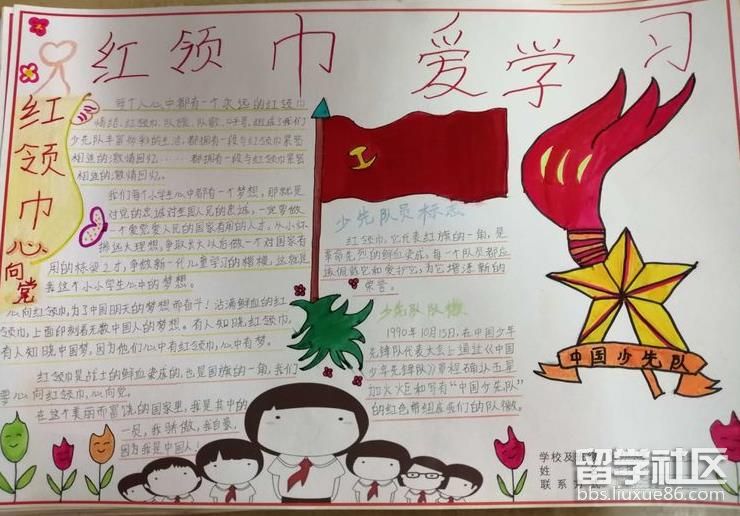 红领巾 爱学习
红领巾心向党
每个人心中都有一个永远的红领巾
情结,红领巾、队旗、队歌、呼号,组成了我们
少先队丰富多彩的生活,都拥有一段与红领巾紧密
相连的激情回忆……都拥有一段与红领巾紧密
相连的激情回忆。
我们每个小学生心中都有一个梦想,那就是
对党的忠诚对祖国人民的忠诚,一定要做
一个爱党爱人民的国家有用的人才,从小怀
揣远大理想,争取长大以后做一个对国家有
用的栋梁之才,争做新一代儿童学习的楷模,这就是
我这个小小学生心中的梦想。
心向红领巾,为了中国明天的梦想而奋斗!沾满鲜血的红
领巾,上面印刻着无数中国人的梦想。有人知晓红领巾,
有人知晓中国梦,因为他们心中有红领巾,心中有梦。
红领巾是战士的鲜血染成的,也是国旗的一角,我们
要心向红领巾,心向党。
在这个美丽而富饶的国家里,我是其中的
一员,我骄傲,我自豪,
因为我是中国人!
少先队员标志
红领巾,它代表红旗的一角,是
革命先烈的鲜血染成,每个队员都应
该佩戴它和爱护它,为它增添新的
荣誉。
少先队队徽
1990年10月15日,在中国少年
先锋队代表大会上通过《中国
少年先锋队》章程确认五星
加火炬和写有“中国少先队”
的红色带组成我们的队徽。
中国少先队
学校及
姓
联系方
留学社区
bbs.liuxue86.com